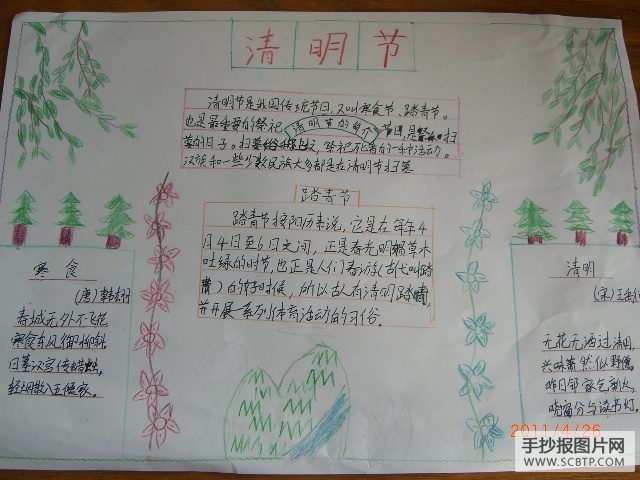 清明节
清明节是我国传统节日,又叫寒食节、踏青节。
也是最重要的祭祀
清明节的简介
节日,是祭祖扫
墓的日子。扫墓俗称上坟,祭祀死者的一种活动。
汉族和一些少数民族大多都是在清明节扫墓
踏青节
踏青节按阳历来说,它是在每年4
月4日至6日之间,正是春光明媚草木
吐绿的时节,也正是人们春游(古代叫踏
青)的好时候,所以古人有清明踏青,
并开展一系列体育活动的习俗。
寒食
(唐)韩翃
春城无处不飞花
寒食东风御柳斜
日暮汉宫传蜡烛,
轻烟散入五侯家。
清明
(宋)王
无花无酒过清明,
兴味萧然似野僧。
昨日邻家乞新火,
晓窗分与读书灯。
2011/4/26
手抄报图片网
WWW.SCBTP.COM